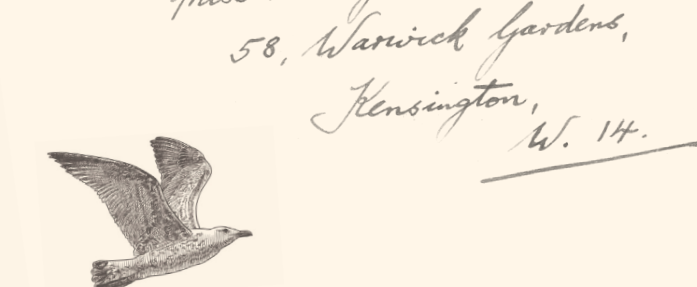 58, Warwick Gardens,
Kensington,
W. 14.